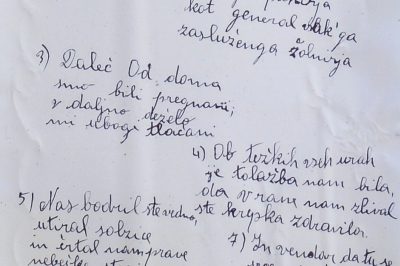 kot general vsak'ga
zasluženga žolnirja
3) Daleč od doma
smo bili pregnani,
v daljno deželo
mi ubogi tlačani
4) Ob težkih vseh urah
je tolažba nam bila,
da v ram nam zlival
ste krepka zdravila.
5) Nas bodril ste vedno,
utiral solzice
in črtal nam prave
7) In vendar da tu se